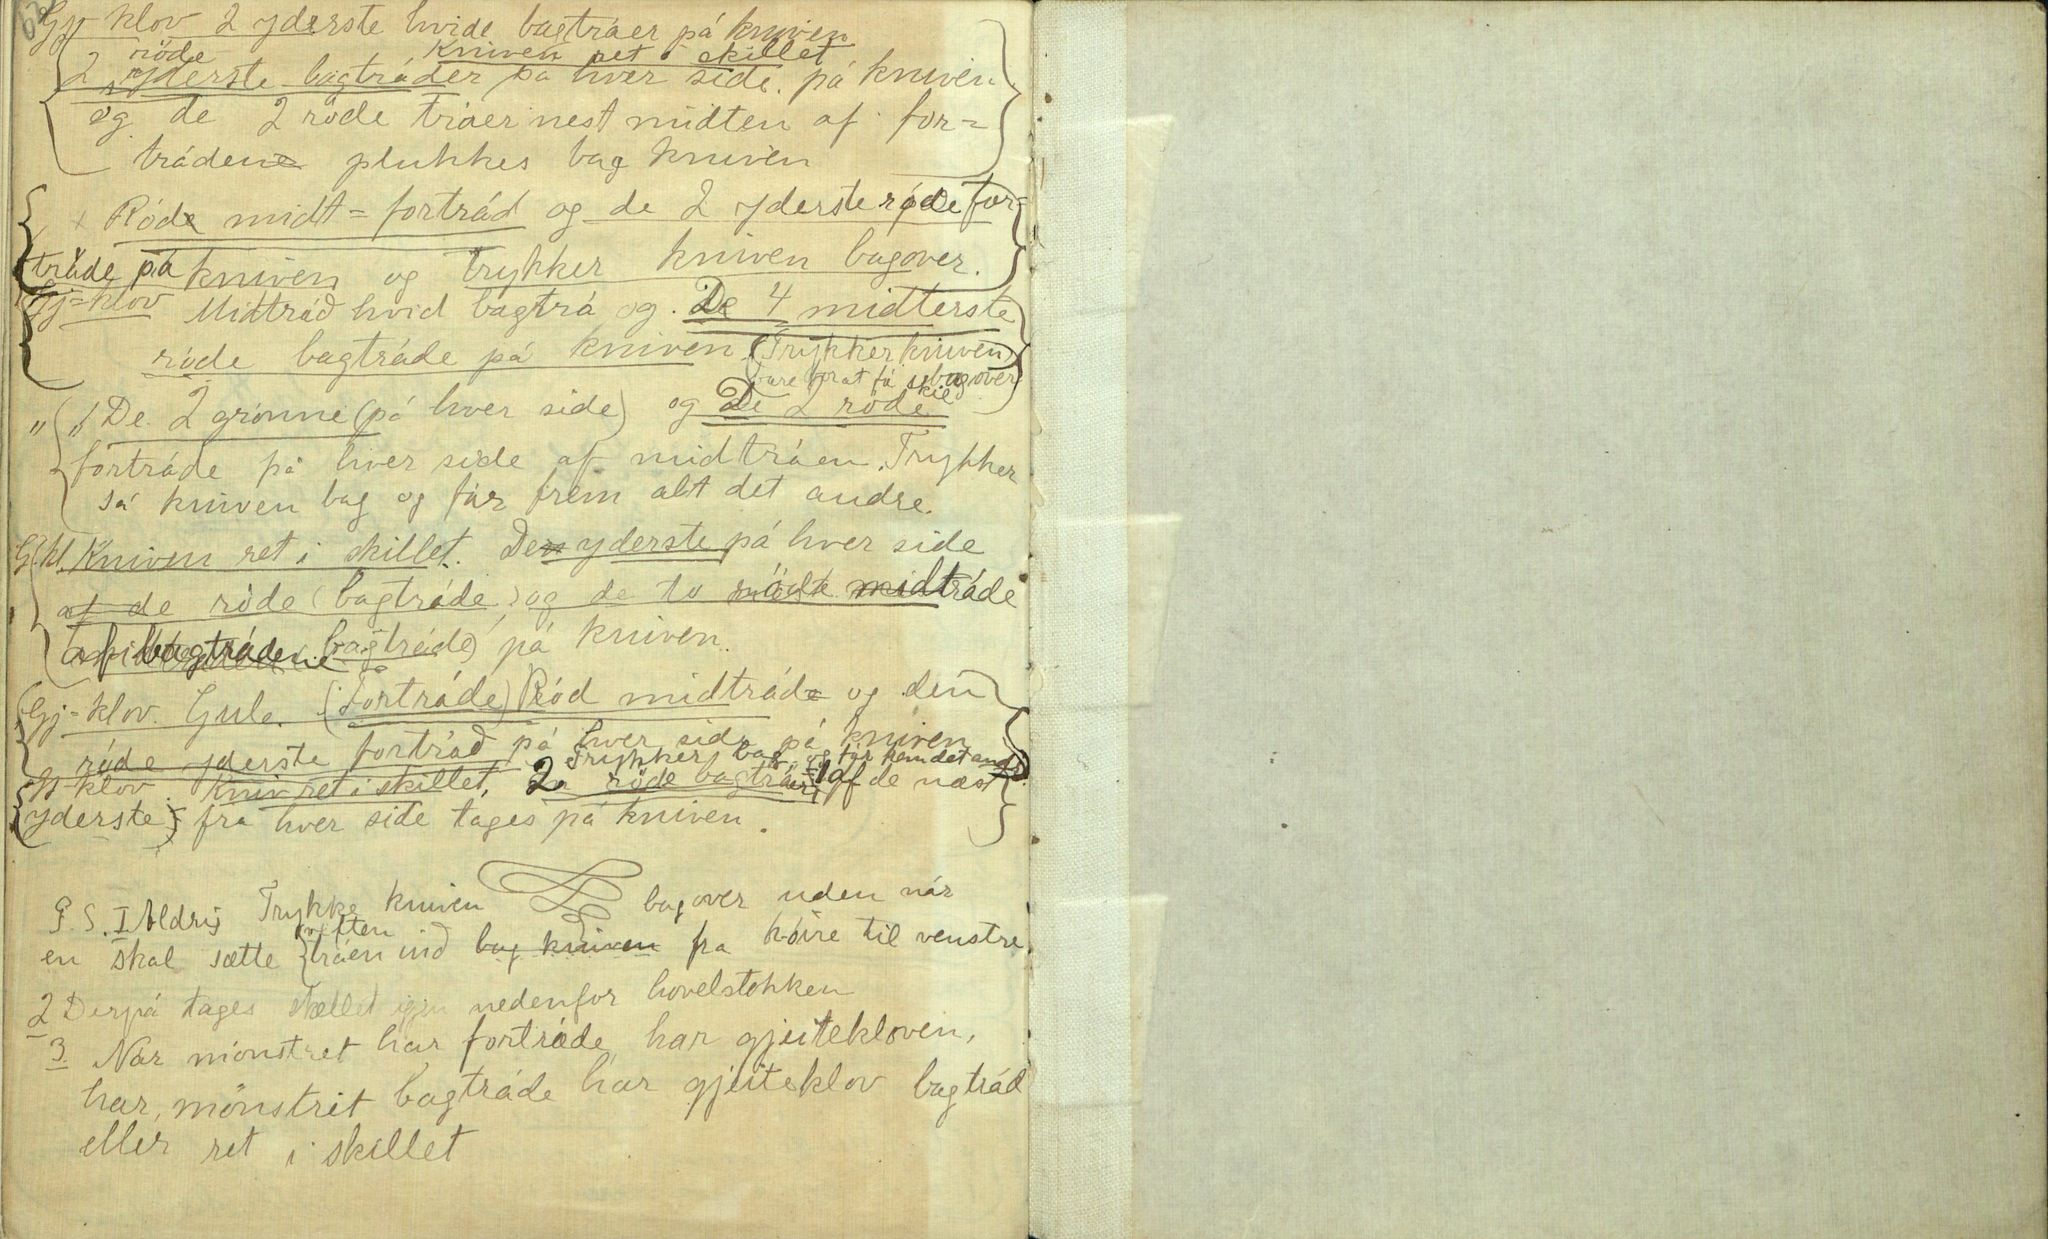 Gj klov 2 yderste hvide bagtráer på kniven
röde Kniven ret i skillet
2 yderste bagtråder på hver side. på kniven
og de 2 röde tráer nest midten af for-
tráden plukkes bag kniven
Róde midt-fortråd og de 2 yderste róde for-
tråde på kniven og trykker kniven bagover.
Gj-klov Midtråd hvid bagtrå og. De 4 midterste
róde bagtráde på kniven. (Trykker kniven
bare for at få skil bagover)
" " De 2 grönne (på hver side) og De 2 röde
fortráde på hver side af midtráen. Trykker
så kniven bag og får frem alt det andre.
G.kl. Kniven ret i skillet. De yderste på hver side
af de röde (bagtråde) og de to midtråde
af bagtrådene bagtråde) på kniven.
Gj-klov. Gule. (Fortráde) Röd midtråd og den
röde yderste fortråd på hver side på kniven
Trykker bag og får frem det andr
Gj-klov. Kniv ret i skillet. 2 röde bagtráer, 1 af de næst
yderste fra hver side tages på kniven.
P.S. I Aldrig Trykke kniven bagover uden når
en skal sætte veften tráen ind bag kniven fra höire til venstre
2 Derpå tages skellet igjen nedenfor hovelstokken
3 Når mönstret har fortråde, har gjeitekloven,
har, mönstret bagtráde har gjeiteklov bagtråd
eller ret i skillet